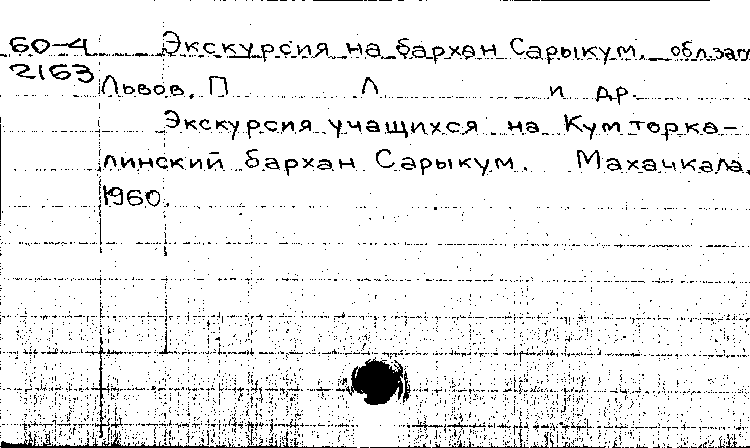 60-4 Экскурсия на бархан Сарыкум. обл.заг
2163 Львов, П Л и др.
Экскурсия учащихся на Кумторка-
линский бархан Сарыкум. Махачкала,
1960.